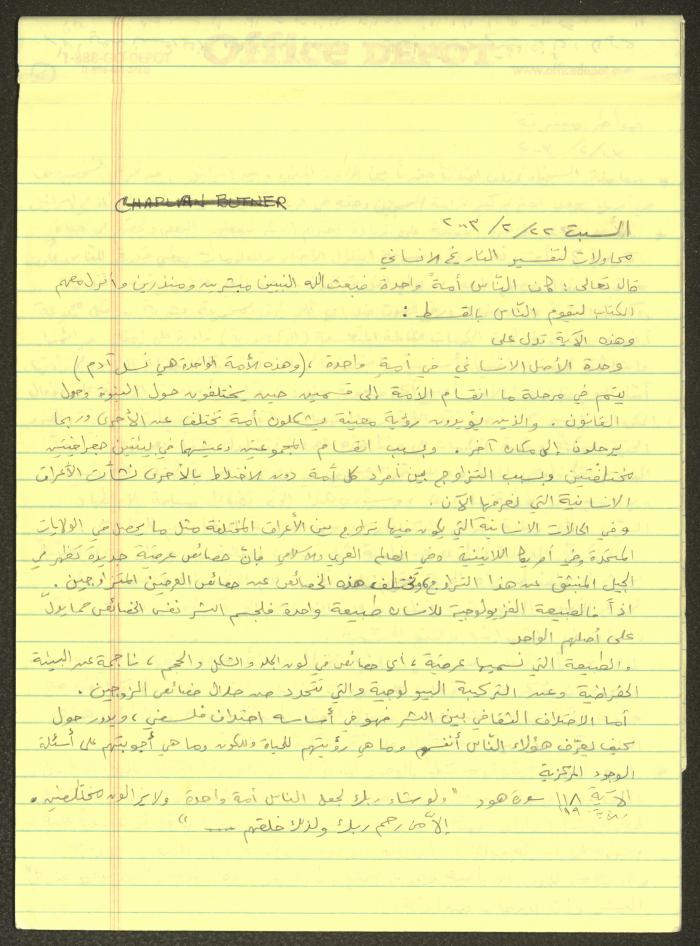 Office DEPOT
www.officedepot.com
CHAPLIAN BUTNER
السبت ٢٢/ ٢/ ٢٠٠٣
محاولات لتفسير التاريخ الانساني
قال تعالى : كان النّاس أمةً واحدة فبعث الله النبيين مبشرين ومنذرين وأنزل معهم
الكتاب ليقوم النّاس بالقسط :
وهذه الآية تدل على
وحدة الأصل الانساني في أمةٍ واحدة ، (وهذه الأمة الواحدة هي نسل آدم)
يتم في مرحلة ما انقسام الأمة إلى قسمين حين يختلفون حول النبوة وحول
القانون . والذين يؤيدون رؤية معينة يشكلون أمة تختلف عن الأخرى وربما
يرحلون إلى مكان آخر . وبسبب انقسام المجموعتين وعيشهما في بيئتين جغرافيتين
مختلفتين وبسبب التزاوج بين أفراد كل أمة دون الاختلاط بالأخرى نشأت الأعراق
الانسانية التي نعرفها الآن .
وفي الحالات الانسانية التي يكون فيها تزاوج بين الأعراق المختلفة مثل ما يحصل في الولايات
المتحدة وفي أمريكا اللاتينية وفي العالم العربي والاسلامي فإن خصائص عرقية جديدة تظهر في
الجيل المنبثق عن هذا التزاوج وتختلف هذه الخصائص عن خصائص العرقين المتزاوجين .
اذاً فالطبيعة الفزيولوجية للانسان طبيعة واحدة فلجسم البشر نفس الخصائص مما يدلّ
على أصلهم الواحد
والطبيعة التي نسميها عرقية ، أي خصائص في لون الجلد والشكل والحجم ، ناجمة عن البيئة
الجغرافية وعن التركيبة البيولوجية والتي تتحدد من خلال خصائص الزوجين .
أما الاختلاف الثقافي بين البشر فهو في أساسه اختلاف فلسفي ، ويدور حول
كيف يعرّف هؤلاء النّاس أنفسهم وما هي رؤيتهم للحياة وللكون وما هي أجوبتهم على أسئلة
الوجود المركزية
الآية ١١٨ سورة هود "ولو شاء ربك لجعل الناس أمة واحدة ولا يزالون مختلفين .
١١٩ إلاّ من رحم ربك ولذلك خلقهم .... "